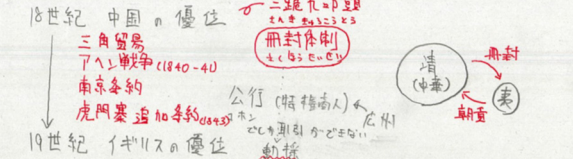 18世紀 中国の優位
三跪九叩頭
さんききゅうこうとう
冊封体制
さくほうたいせい
三角貿易
アヘン戦争(1840-41)
南京条約
虎門寨追加条約(1843)
清
(中華)
冊封
夷
朝貢
公行(特権商人)
広州
コホン
でしか取引ができない
19世紀 イギリスの優位
動揺